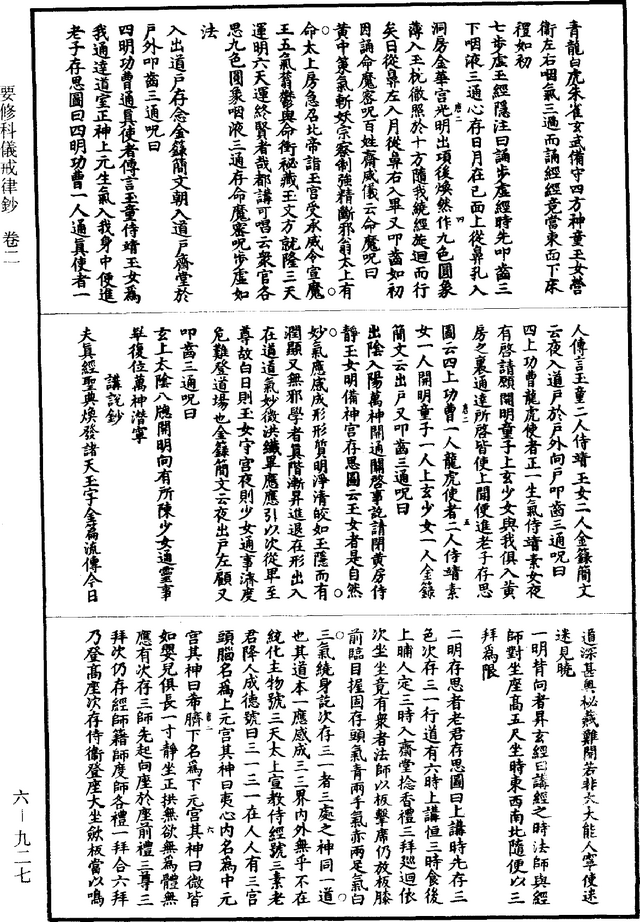 青龍白虎朱雀玄武備守四方神童玉女營
衛左右咽氣三過而誦經經竟當東面下床
禮如初
七步虛玉經隱注曰誦步虛經時先叩齒三
下咽液三過心存日月在己面上從鼻孔入
洞房金華宮光明出項後煥然作九色圓象
薄入玉枕徹照於十方隨我繞經旋迴而行
矣日從鼻左入月從鼻右入畢又叩齒如初
因誦命魔密呪百姓齋威儀云命魔呪曰
黃中策氣斬妖宗察制強精斷邪翁太上有
命太上房急召北帝詣玉宮受承威令宣魔
王五氣蓊鬱與命衝祕藏玉文方就隆三天
運明六天運終賢者哉都講可唱云衆官各
思九色圓象咽液三通存命魔密呪步虛如
法
入出道戶存念金籙簡文朝入道戶齋堂於
戶外叩齒三通呪曰
四明功曹通真使者傳言玉童侍靖玉女為
我通達道室正神上元生氣入我身中便進
老子存思圖曰四明功曹一人通真使者一
人傳言玉童二人侍靖玉女二人金籙簡文
云夜入道戶於戶外向戶叩齒三通呪曰
四上功曹龍虎使者正一生氣侍靖素女夜
有啓請願開明童子上玄少女與我俱入黃
房之裏通達所啓皆使上聞便進老子存思
圖云四上功曹一人龍虎使者二人侍靖素
女一人開明童子一人上玄少女一人金籙
簡文云出戶又叩齒三通呪曰
出陰入陽萬神開通關啓事訖請閉黃房侍
靜玉女明備神宮存思圖云玉女者是自然
妙氣應感成形形質明淨清皎如玉隱而有
潤顯又無邪學者真階漸昇進退在形出入
在道道氣妙微洪纖畢應應引以次從卑至
尊故白日則玉女守宮夜則少女通事濟度
危難登道場也金籙簡文云夜出戶左顧又
叩齒三通呪曰
玄上太陰八牕開明向有所陳少女通靈事
畢復位萬神潛寧
講說鈔
夫真經聖典煥發諸天玉字金篇流傳今日
道深甚奧祕藏難聞若非大大能人寧使迷
迷見曉
一明背向者昇玄經曰講經之時法師與經
師對坐座高五尺坐時東西南北隨便以三
拜為限
二明存思者老君存思圖曰上講時先存三
色次存三一行道有六時上講恒三時食後
上晡人定三時入齋堂捻香禮三拜廻迴依
次坐坐竟有衆者法師以板擊席仍放板膝
前臨目握固存頭氣青兩手氣赤兩足氣白
三氣繞身訖次存三一者三處之神同一道
也其道本一應感成三三界內外無乎不在
統化主物號三天太上宣教侍經號三素老
君降人成德號曰三一三一在人人有三宮
頭腦名為上元宮其神曰夷心內名為中元
宮其神曰希臍下名為下元宮其神曰微皆
如嬰兒俱長一寸靜坐正拱無欲無為體無
應有次存三師先起向座於座前禮三尊三
拜次仍存經師籍師度師各禮一拜合六拜
乃登高座次存侍衛登座大坐斂板當以鳴
要修科儀戒律鈔 卷二
六－九二七